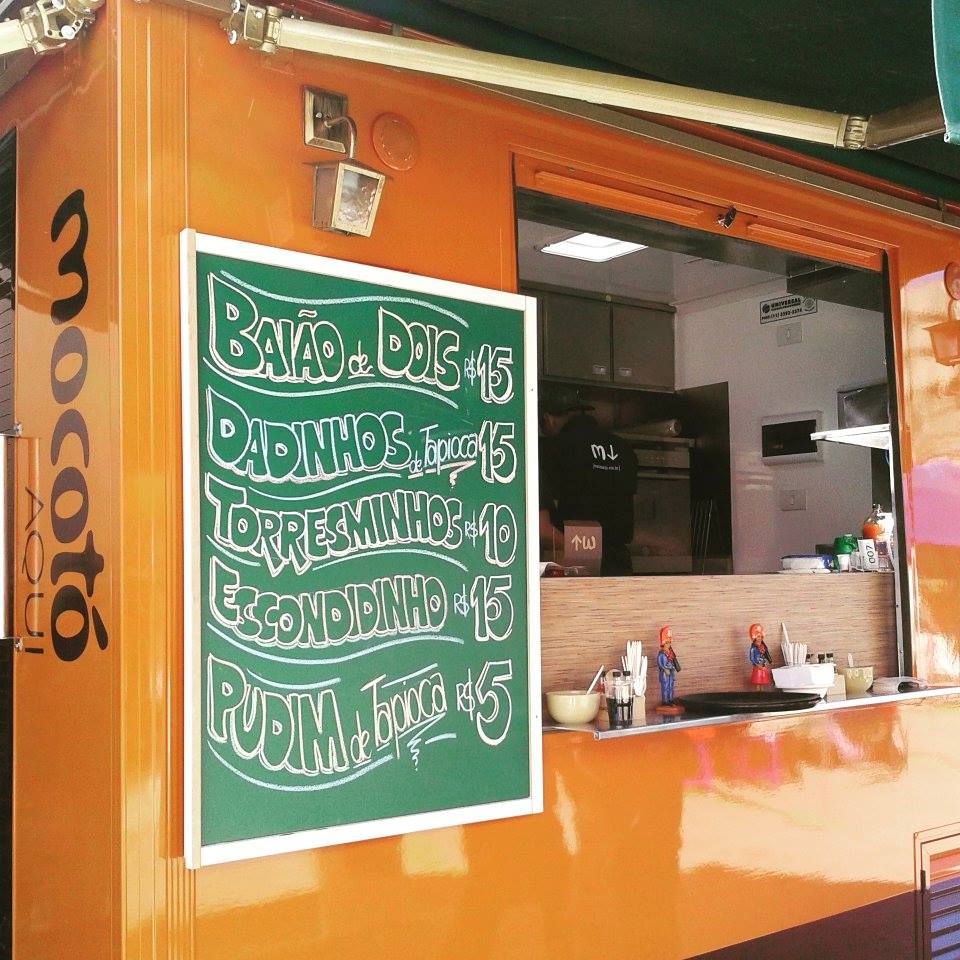 mocotó
AQUI
BAIÃO de DOIS R$ 15
DADINHOS de Tapioca 15
TORRESMINHOS R$ 10
ESCONDIDINHO R$ 15
PUDIM de Tapioca R$ 5
UNIVERSAL
m↓
↑m
007